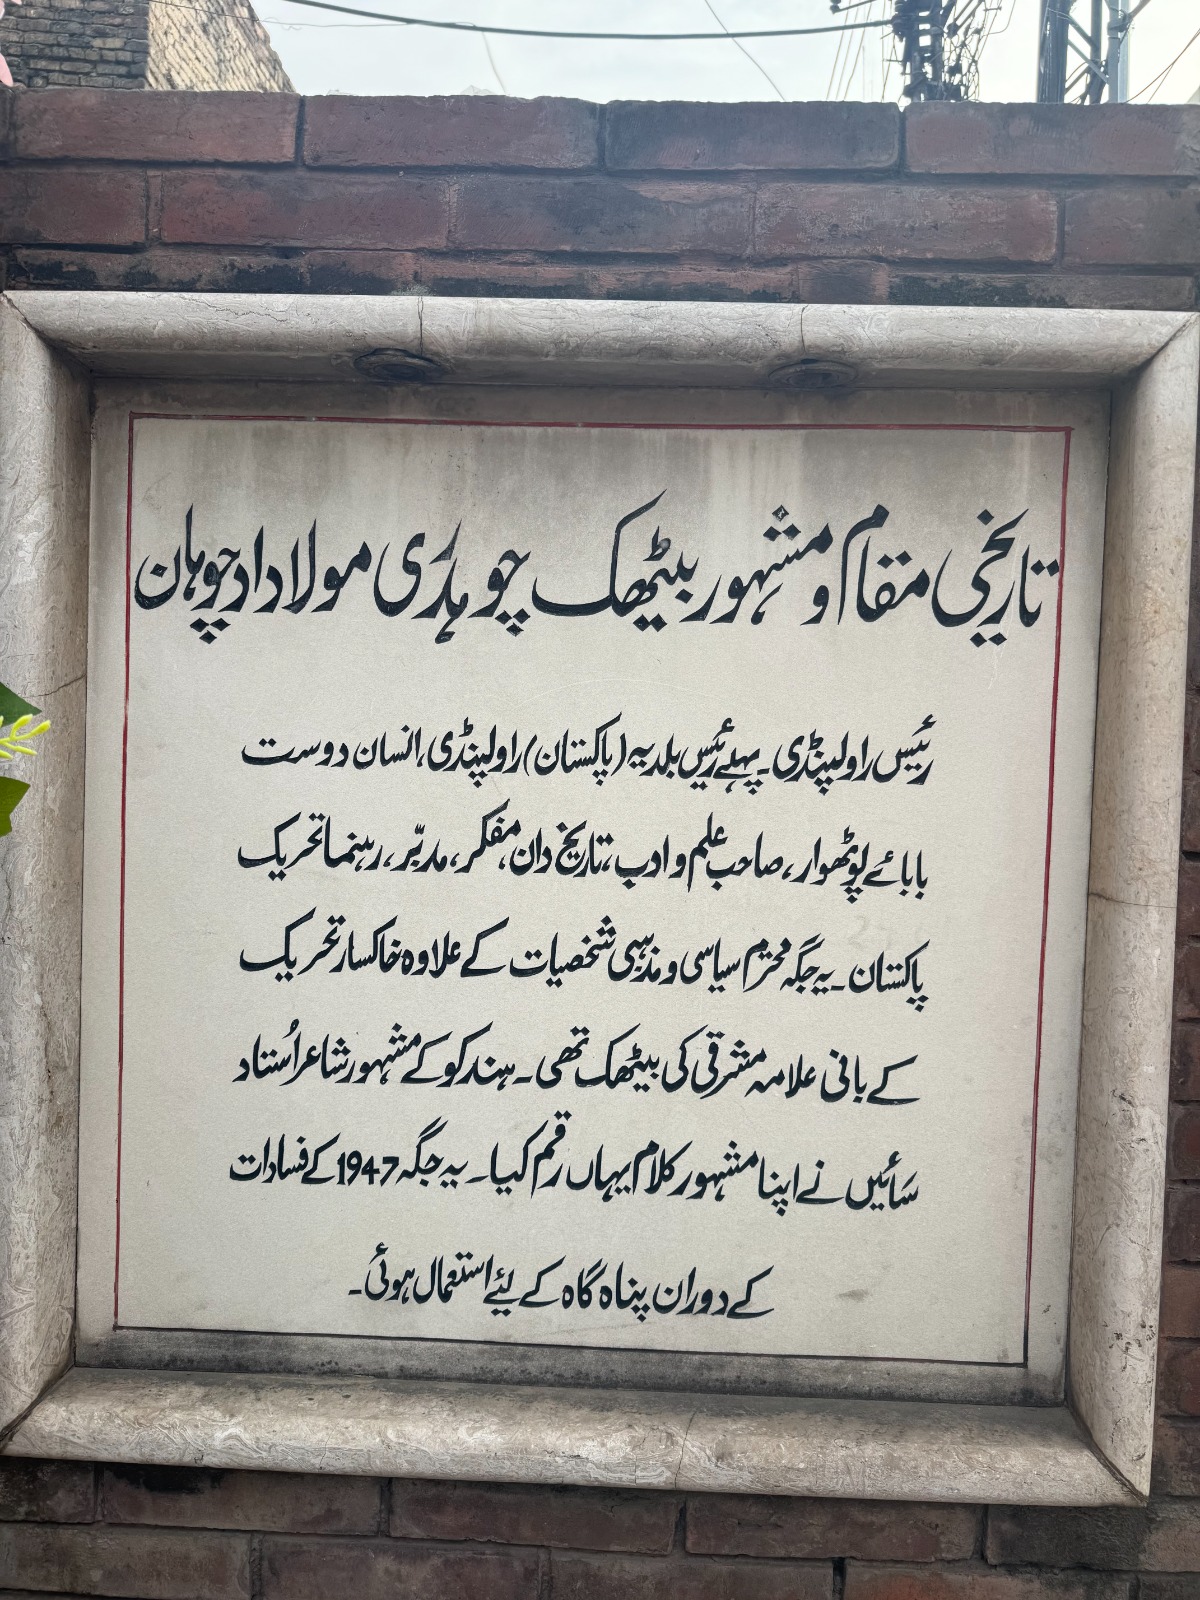 تاریخی مقام و مشہور بیٹھک چوہدری مولاداد چوہان
رئیس راولپنڈی۔ پہلے رئیس بلدیہ (پاکستان) راولپنڈی، انسان دوست
بابائے پوٹھوار، صاحب علم و ادب، تاریخ دان، مفکر، مدبّر، رہنما تحریک
پاکستان۔ یہ جگہ محترم سیاسی و مذہبی شخصیات کے علاوہ خاکسار تحریک
کے بانی علامہ مشرقی کی بیٹھک تھی۔ ہندکو کے مشہور شاعر اُستاد
سَائیں نے اپنا مشہور کلام یہاں رقم کیا۔ یہ جگہ 1947 کے فسادات
کے دوران پناہ گاہ کے لیٔے استعمال ہوئی۔